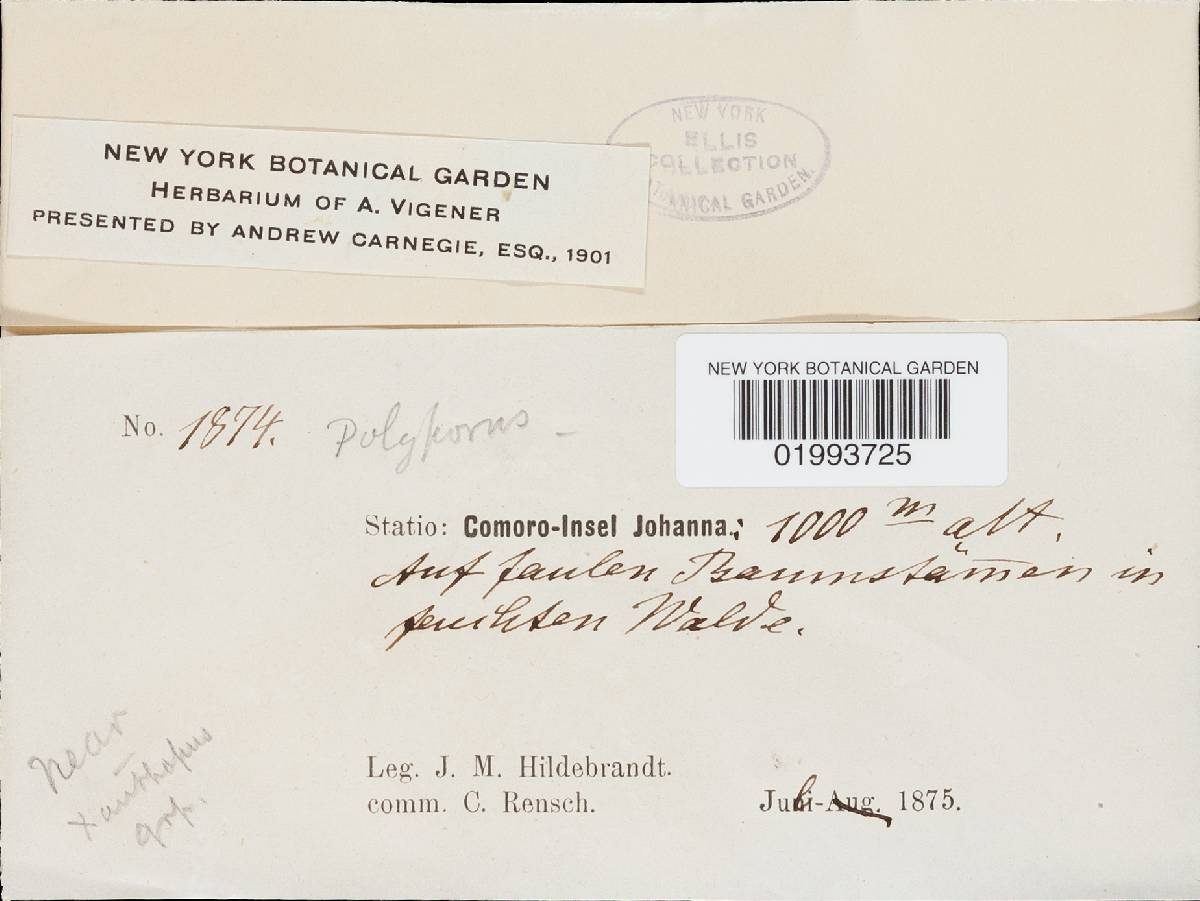 NEW YORK
ELLIS
COLLECTION
BOTANICAL GARDEN.
NEW YORK BOTANICAL GARDEN
HERBARIUM OF A. VIGENER
PRESENTED BY ANDREW CARNEGIE, ESQ., 1901
NEW YORK BOTANICAL GARDEN
01993725
No. 1874. Polyporus –
Statio: Comoro-Insel Johanna.; 1000 m alt.
Auf faulen Baumstämen in
feuchten Walde.
near
xanthopus
grp.
Leg. J. M. Hildebrandt.
comm. C. Rensch.
Juli-Aug. 1875.